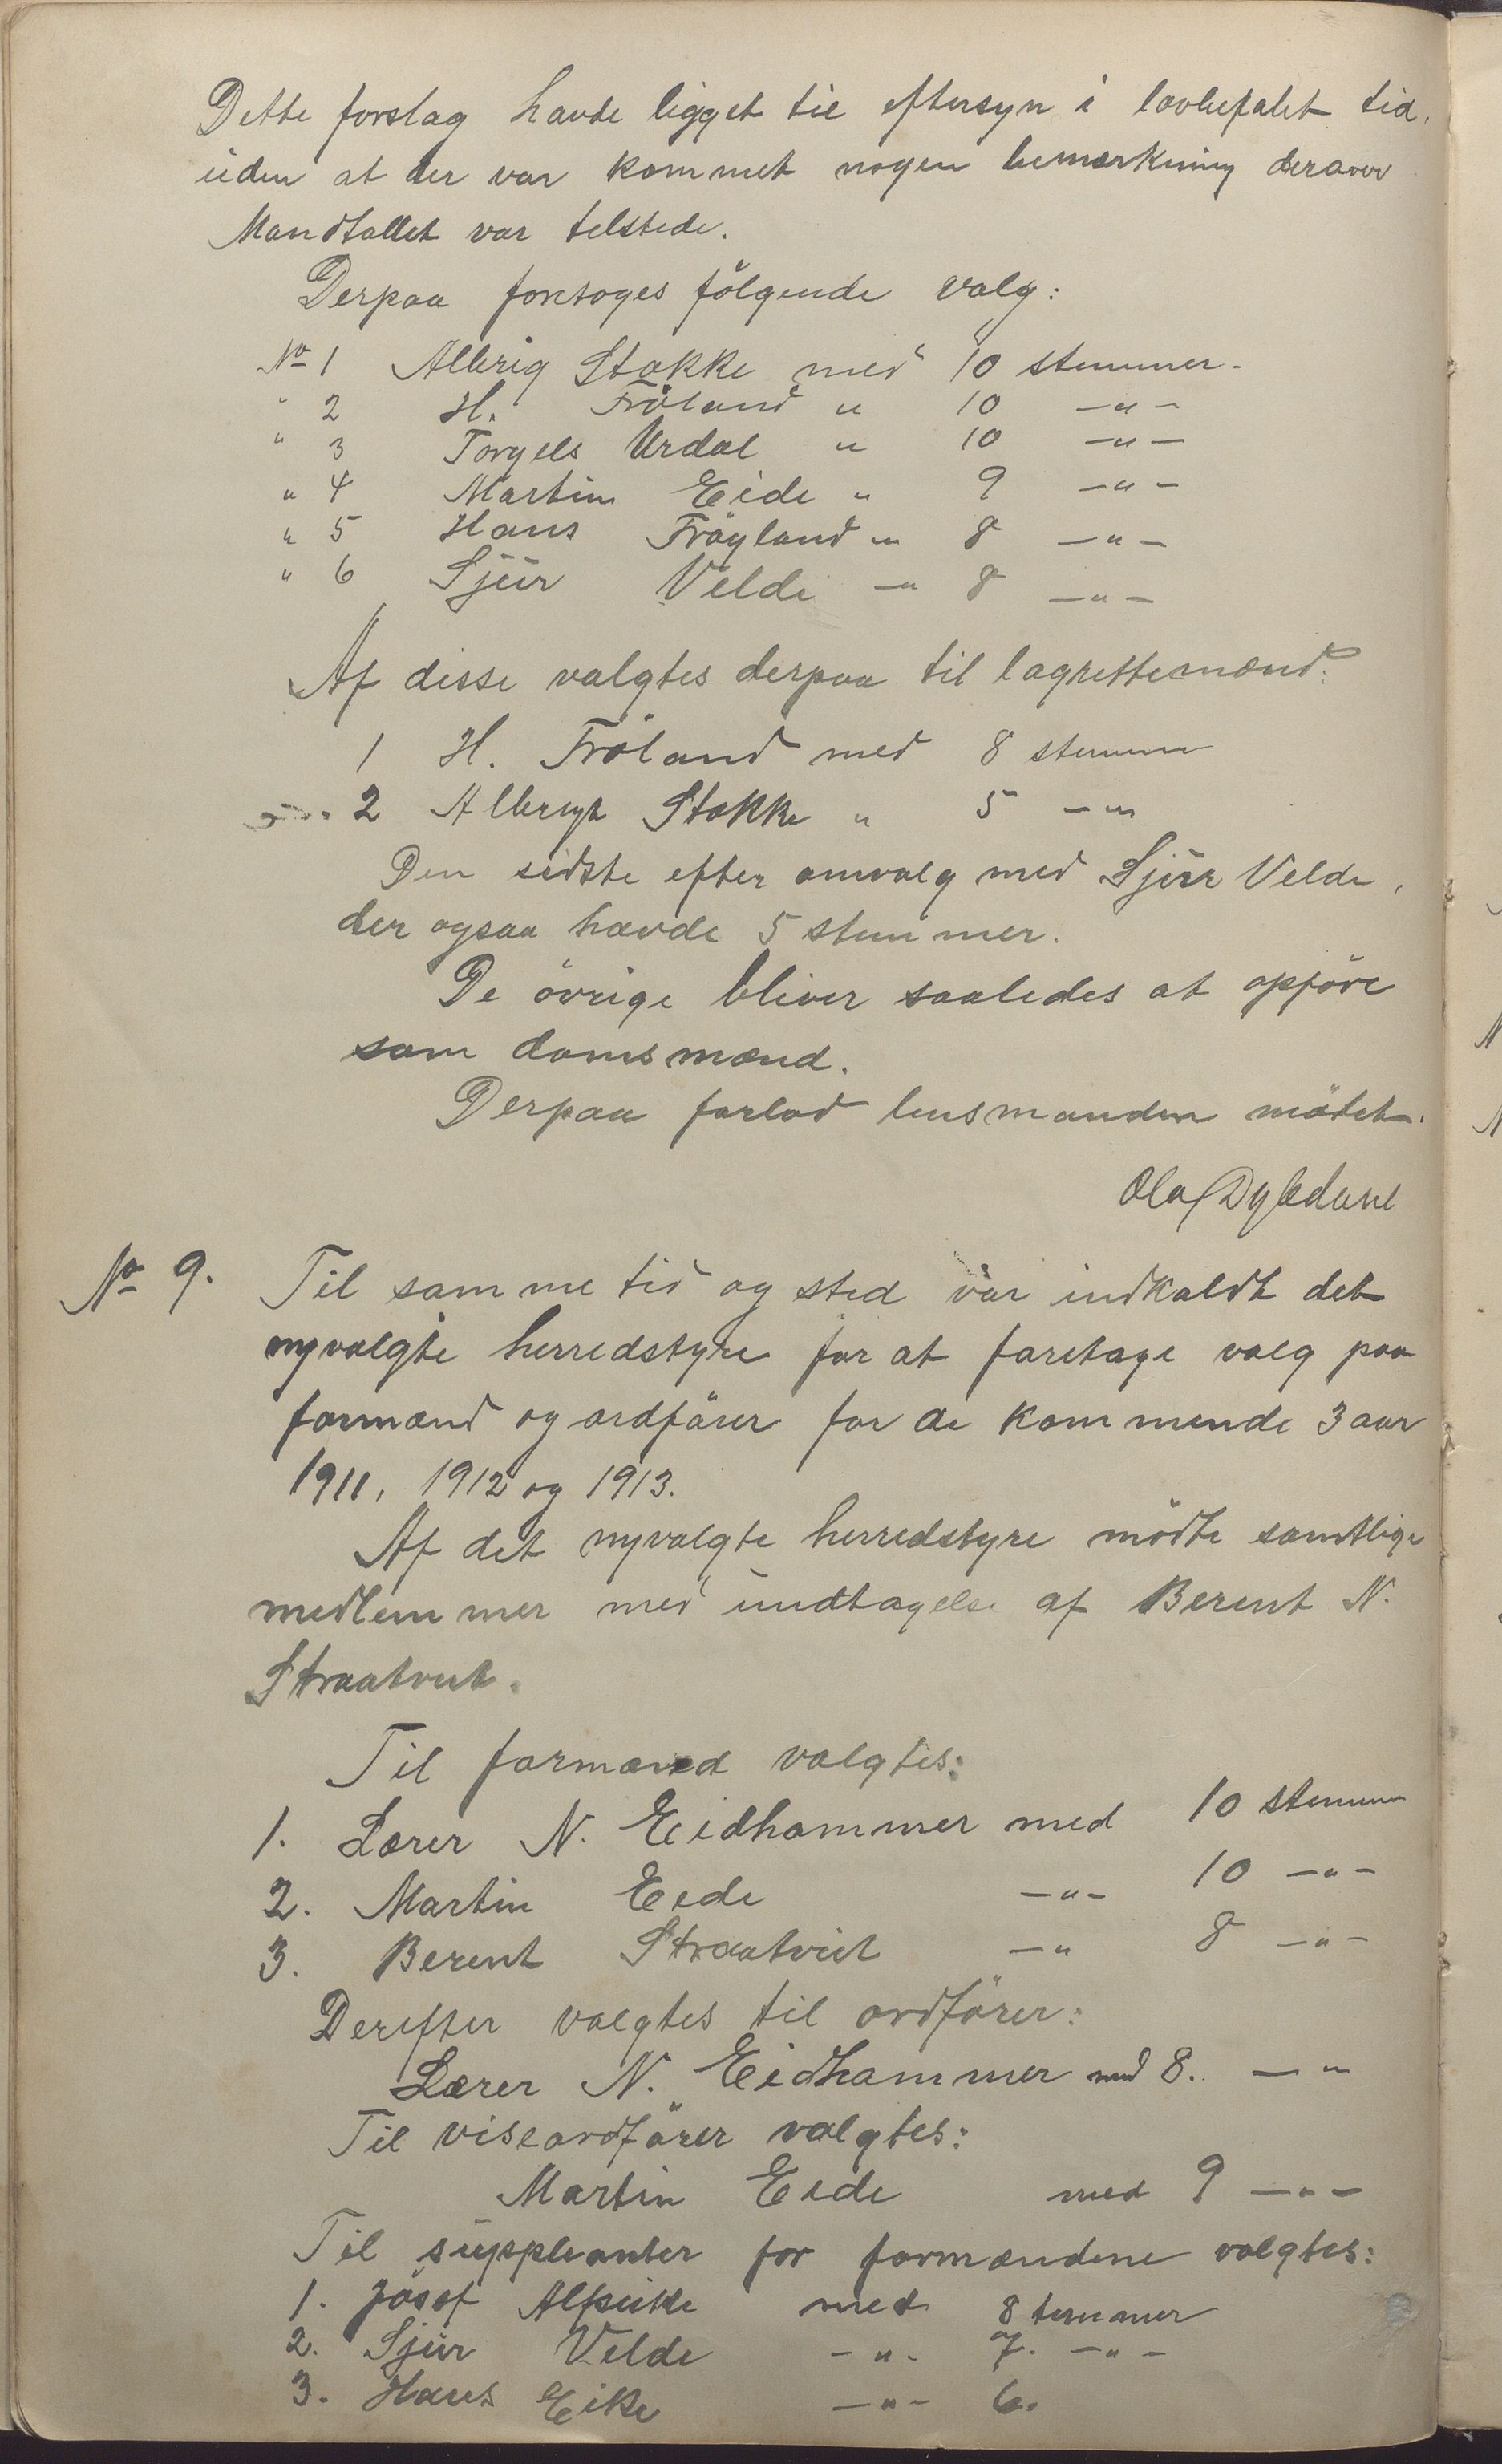 Dette forslag havde ligget til eftersyn i lovbefalet tid,
uden at der var kommet nogen bemærkning derover
Mandtallet var telstede.
Derpaa foretoges følgende valg:
No 1 Albrig Stokke med 10 stemmer.
" 2 H. Fröland " 10 —"—
" 3 Torgels Urdal " 10 —"—
" 4 Martin Eide " 9 —"—
" 5 Hans Fröyland " 8 —"—
" 6 Sjur Velde —" 8 —"—
Af disse valgtes derpaa til lagrettemænd:
1 H. Fröland med 8 stemmer
2 Albrigt Stokke " 5 —"
Den sidste efter omvalg med Sjur Velde,
der ogsaa havde 5 stemmer.
De övrige bliver saaledes at opföre
som domsmænd.
Derpaa forlod lensmanden mödet.
Olaf
No 9. Til samme tid og sted var indkaldt det
nyvalgte herredstyre for at foretage valg paa
formænd og ordförer for de kommende 3 aar
1911, 1912 og 1913.
Af det nyvalgte herredstyre mödte samtlige
medlemmer med undtagelse af Berent N.
Straatveit.
Til formænd valgtes:
1. Lærer N. Eidhammer med 10 stemmer
2. Martin Eide —"— 10 —"—
3. Berent Straatveit —" 8 —"—
Derefter valgtes til ordförer:
Lærer N. Eidhammer med 8. —"
Til viseordförer valgtes:
Martin Eide med 9 —"—
Til suppleanter for formændene valgtes:
1. Jösef Alfseike med 8 temmer
2. Sjur Velde —"— 7. —"—
3. Hans Eike —"— 6.